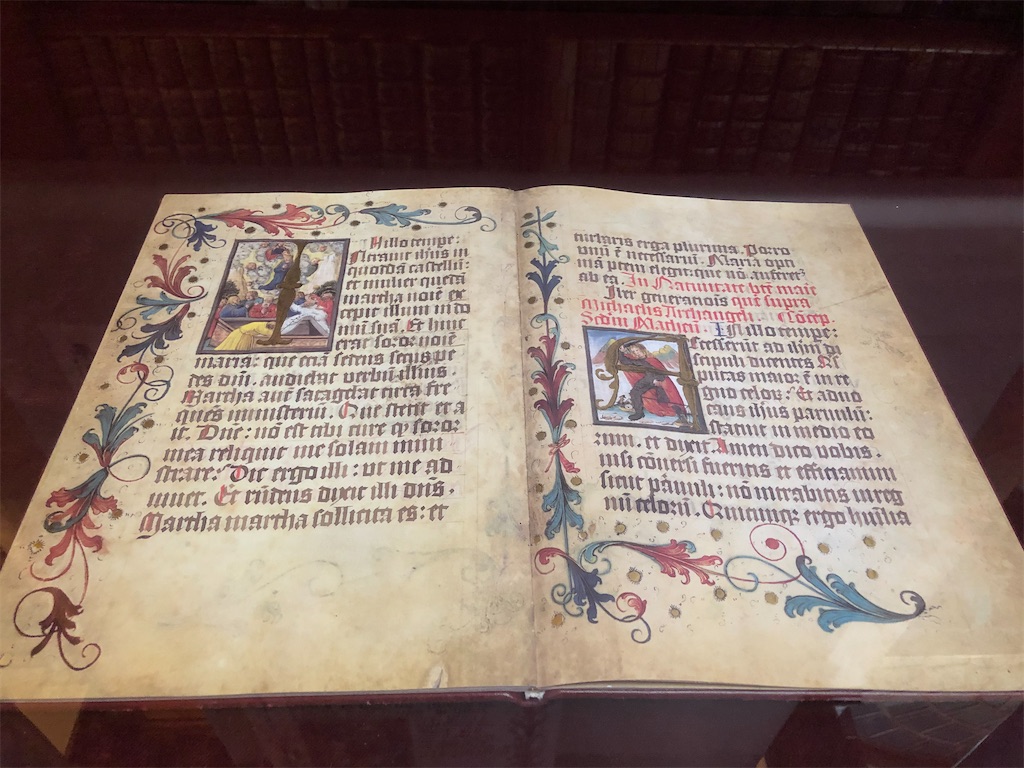 N illo tempe:
Intravit ihus in
quodda castellū:
et mulier queda
martha noīe ex
cepit illum in do
mū suā. Et huic
erat soror noīe
maria: que eciā sedens secus pe
des dn̄i. audiebat verbū illius.
Martha aut satagebat circa fre
ques ministeriū. Que stetit et a
it. Dn̄e: nō est tibi cure qꝫ soror
mea reliquit me solam mini
strare: Dic ergo illi: ut me ad
iuvet. Et rn̄dens dixit illi dn̄s.
Martha martha sollicita es: et
turbaris erga plurima. Porro
unū ē necessariū. Maria opti
mā ptem elegit: que nō auferet
ab ea. In Nativitate bte marie
Liber generatiois que supra
Michaelis Archangeli
Scdm Matheū. In illo tempe:
Accesserūt ad ihm di
scipuli dicentes Qs
putas maior ē in re
gno celoꝝ. Et advo
cans ihus parvulū:
statuit in medio eo
rum. et dixit Amen dico vobis.
nisi cōversi fueritis et efficiamini
sicut pārvuli: nō intrabitis in reg
nū celorū. Quicumqꝫ ergo humilia